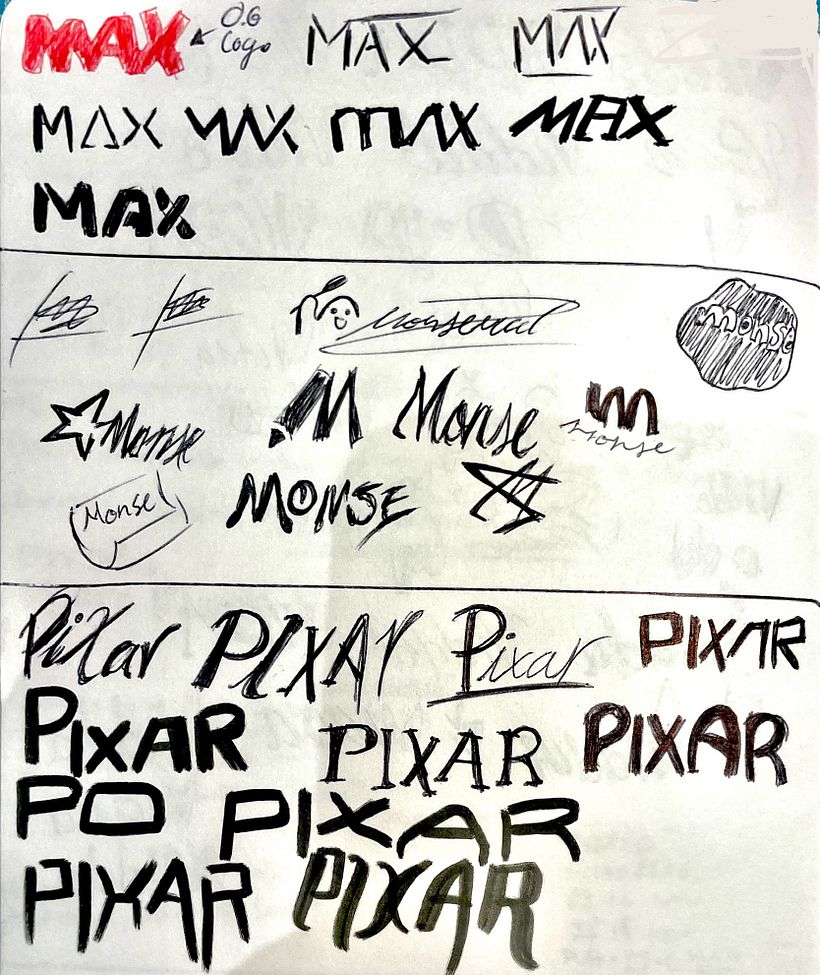 MAX O.G
Logo MAX MAX
MAX MAX MAX MAX
MAX
monse
Monse M Monse m
Monse
Monse MONSE
Pixar PIXAR Pixar PIXAR
PIXAR PIXAR PIXAR
PO PIXAR
PIXAR PIXAR